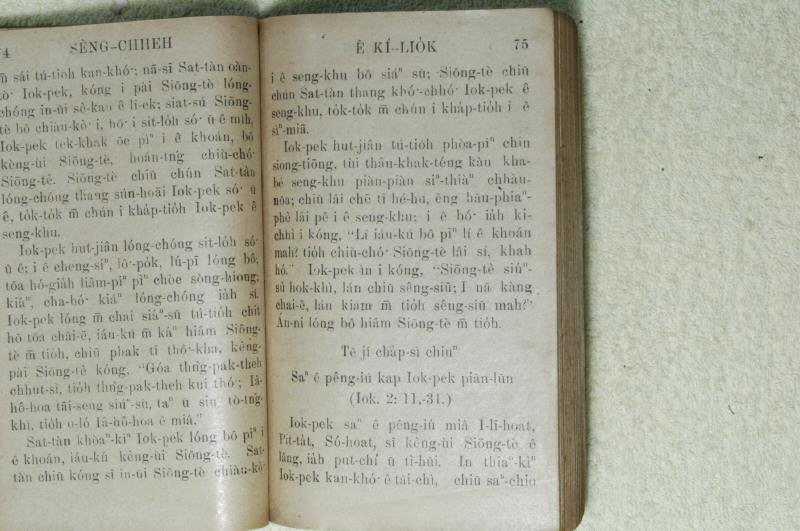 4 SÈNG-CHHEH
m̄ sái tú-tio̍h kan-khó͘; nā-sī Sat-tàn oàn-
tò͘ Iok-pek, kóng i pài Siōng-tè lóng-
chóng in-ūi sè-kan ê lī-ek; siat-sú Siōng-
tè bô chiàu-kò͘ i, hō͘ i sit-lo̍h só͘ ū ê mi̍h,
Iok-pek tek-khak ōe pìⁿ i ê khoán, bô
kèng-ùi Siōng-tè, hoán-tńg chiù-chó͘
Siōng-tè. Siōng-tè chiū chún Sat-tàn
lóng-chóng thang sún-hoāi Iok-pek só͘ ū
ê, to̍k-to̍k m̄ chún i kha̍p-tio̍h Iok-pek ê
seng-khu.
Iok-pek hut-jiân lóng-chóng sit-lo̍h só͘
ū ê; i ê cheng-siⁿ, lô͘-po̍k, lú-pī lóng bô;
tōa hó-gia̍h liâm-piⁿ pìⁿ chòe sòng-hiong;
kiáⁿ, cha-bó͘ kiáⁿ lóng-chóng ia̍h sí.
Iok-pek lóng m̄ chai siáⁿ-sū tú-tio̍h chit
hō tōa châi-ē, iáu-kú m̄ káⁿ hiâm Siōng-
tè m̄ tio̍h, chiū phak tī thô͘-kha, kèng-
pài Siōng-tè kóng, “Góa thǹg-pak-theh
chhut-sì, tio̍h thǹg-pak-theh kui thó͘; Iâ-
hô-hoa tāi-seng siúⁿ-sù, taⁿ ū siu tò-tńg-
khì, tio̍h o-ló Iâ-hô-hoa ê miâ.”
Sat-tàn khòaⁿ-kìⁿ Iok-pek lóng bô pìⁿ i
ê khoán, iáu-kú kèng-ùi Siōng-tè. Sat-
tàn chiū kóng sī in-ūi Siōng-tè chiàu-kò͘
Ê KÍ-LIO̍K 75
i ê seng-khu bô siáⁿ sū; Siōng-tè chiū
chún Sat-tàn thang khó͘-chhó͘ Iok-pek ê
seng-khu, to̍k-to̍k m̄ chún i kha̍p-tio̍h i ê
sìⁿ-miā.
Iok-pek hut-jiân tú-tio̍h phòa-pīⁿ chin
siong-tiōng, tùi thâu-khak-téng kàu kha-
bé seng-khu piàn-piàn siⁿ-thiàⁿ chhàu-
nōa; chiū lâi chē tī hé-hu, ēng hāu-phìaⁿ-
phè lâi pê i ê seng-khu; i ê bó͘ ia̍h kí-
chhì i kóng, “Lí iáu-kú bô pìⁿ lí ê khoán
mah? tio̍h chiù-chó͘ Siōng-tè lâi sí, khah
hó.” Iok-pek ìn i kóng, “Siōng-tè siúⁿ-
sù hok-khì, lán chiū sêng-siū; I nā kàng
chai-ē, lán kiám m̄ tio̍h sêng-siū mah?”
An-ni lóng bô hiâm Siōng-tè m̄ tio̍h.
Tē jī-cha̍p-sì chiuⁿ
Saⁿ ê pêng-iú kap Iok-pek piān-lūn
(Iok. 2: 11,-31.)
Iok-pek saⁿ ê pêng-iú miâ Í-lī-hoat,
Pit-ta̍t, Só-hoat, sī kèng-ùi Siōng-tè ê
lâng, ia̍h put-chí ū tì-hūi. In thiaⁿ-kìⁿ
Iok-pek kan-khó͘ ê tāi-chì, chiū saⁿ-chio